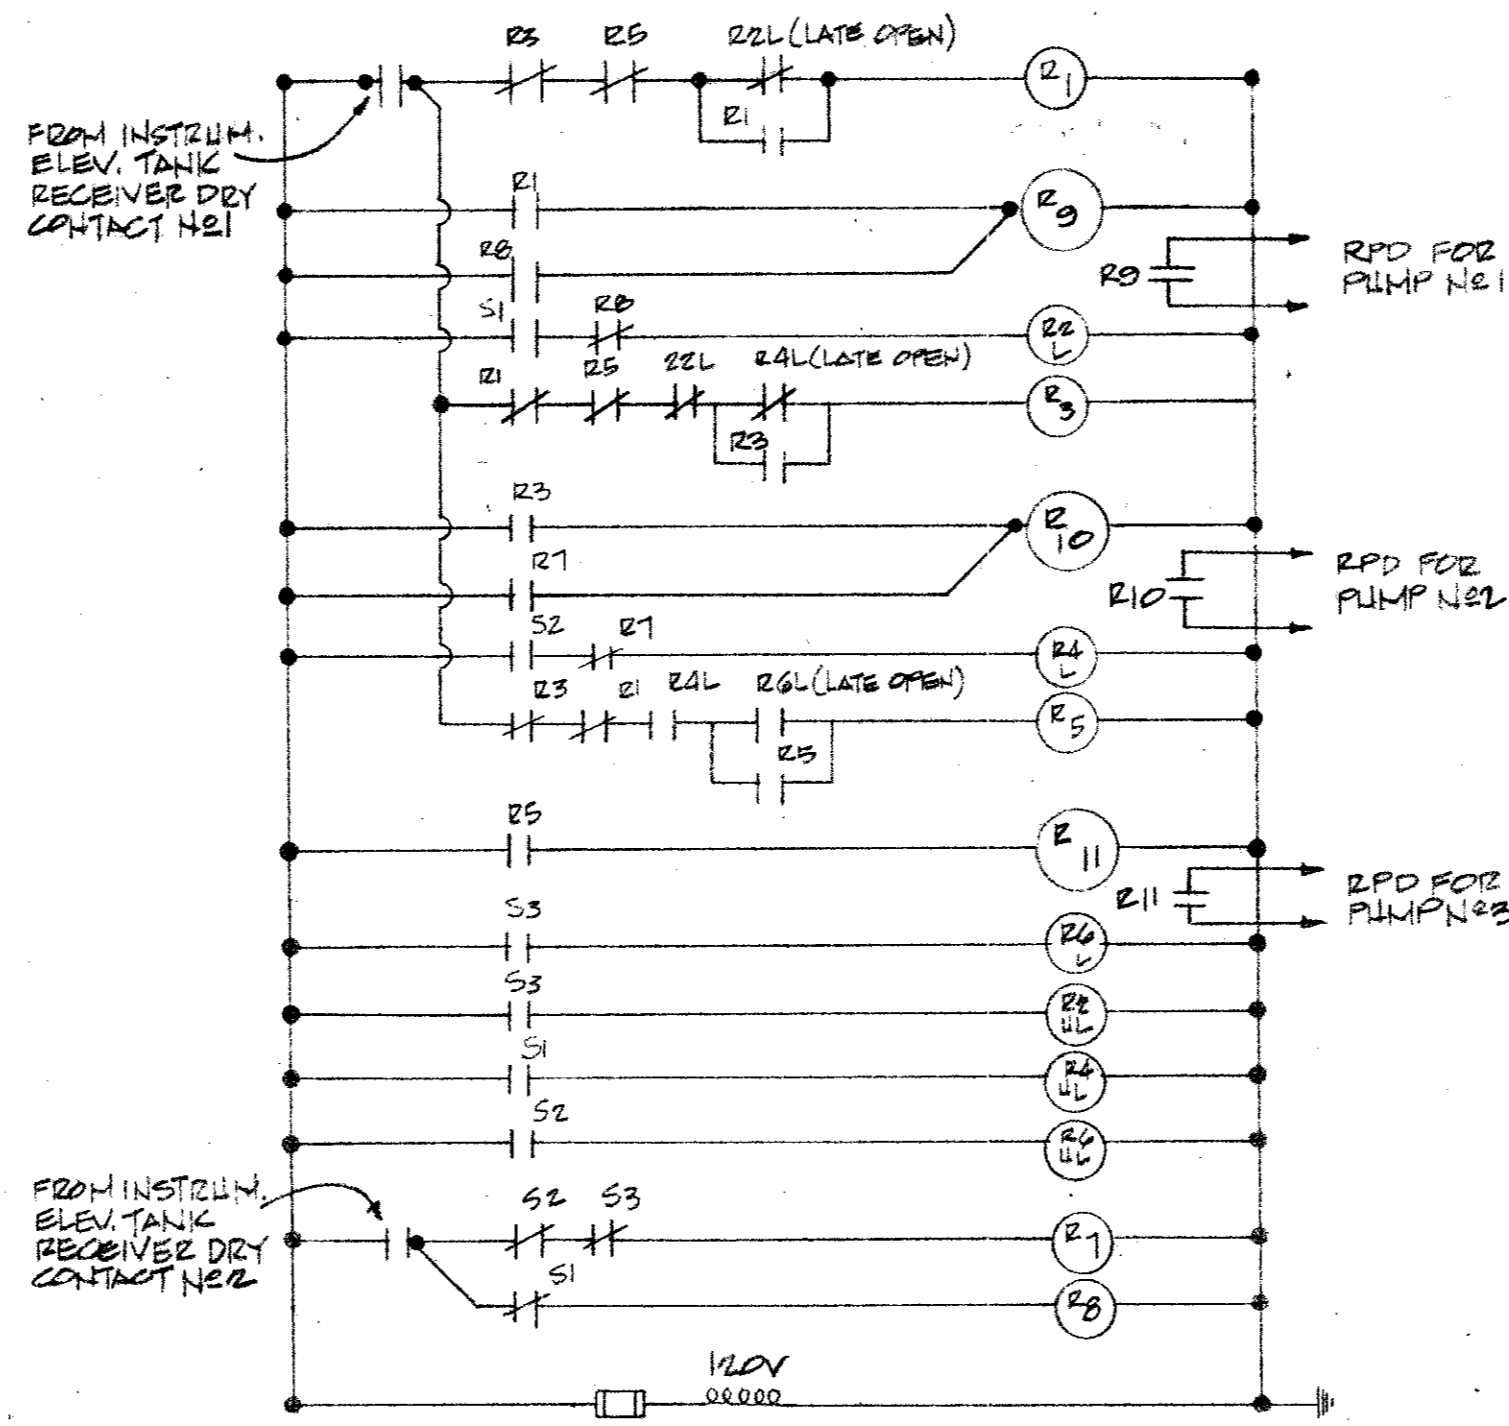 R3 R5 R22L (LATE OPEN)
R1
R1
FROM INSTRUM.
ELEV. TANK
RECEIVER DRY
CONTACT No1
R1
R9
R8
R9
RPD FOR
PUMP No1
S1 R8
R2
L
R1 R5 22L R4L (LATE OPEN)
R3
R3
R3
R10
R7
R10
RPD FOR
PUMP No2
S2 R7
R4
L
R3 R1 R4L R6L (LATE OPEN)
R5
R5
R5
R11
R11
RPD FOR
PUMP No3
S3
R6
L
S3
R2
UL
S1
R4
UL
S2
R6
UL
FROM INSTRUM.
ELEV. TANK
RECEIVER DRY
CONTACT No2
S2 S3
R7
S1
R8
120V